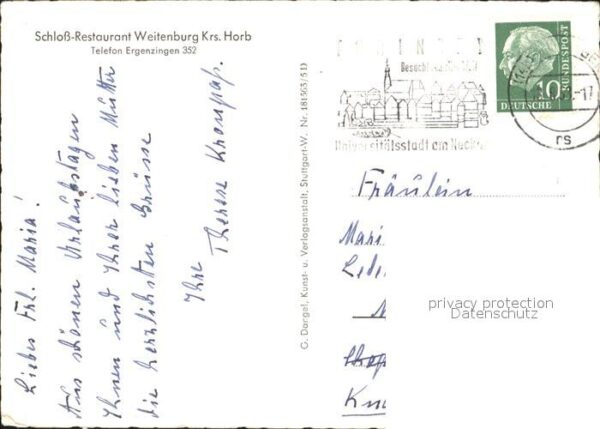 Schloß-Restaurant Weitenburg Krs. Horb
Telefon Ergenzingen 352
Liebes Frl. Maria!
Aus schönen Urlaubstagen
Ihnen und Ihrer lieben Mutter
die herzlichsten Grüsse
Ihre
Therese
G. Dangel, Kunst- u. Verlagsanstalt, Stuttgart-W, Nr. 181963/51)
TÜBINGEN
Universitätsstadt am Neckar
10
DEUTSCHE
BUNDESPOST
-17
Fräulein
Mari
privacy protection
Datenschutz